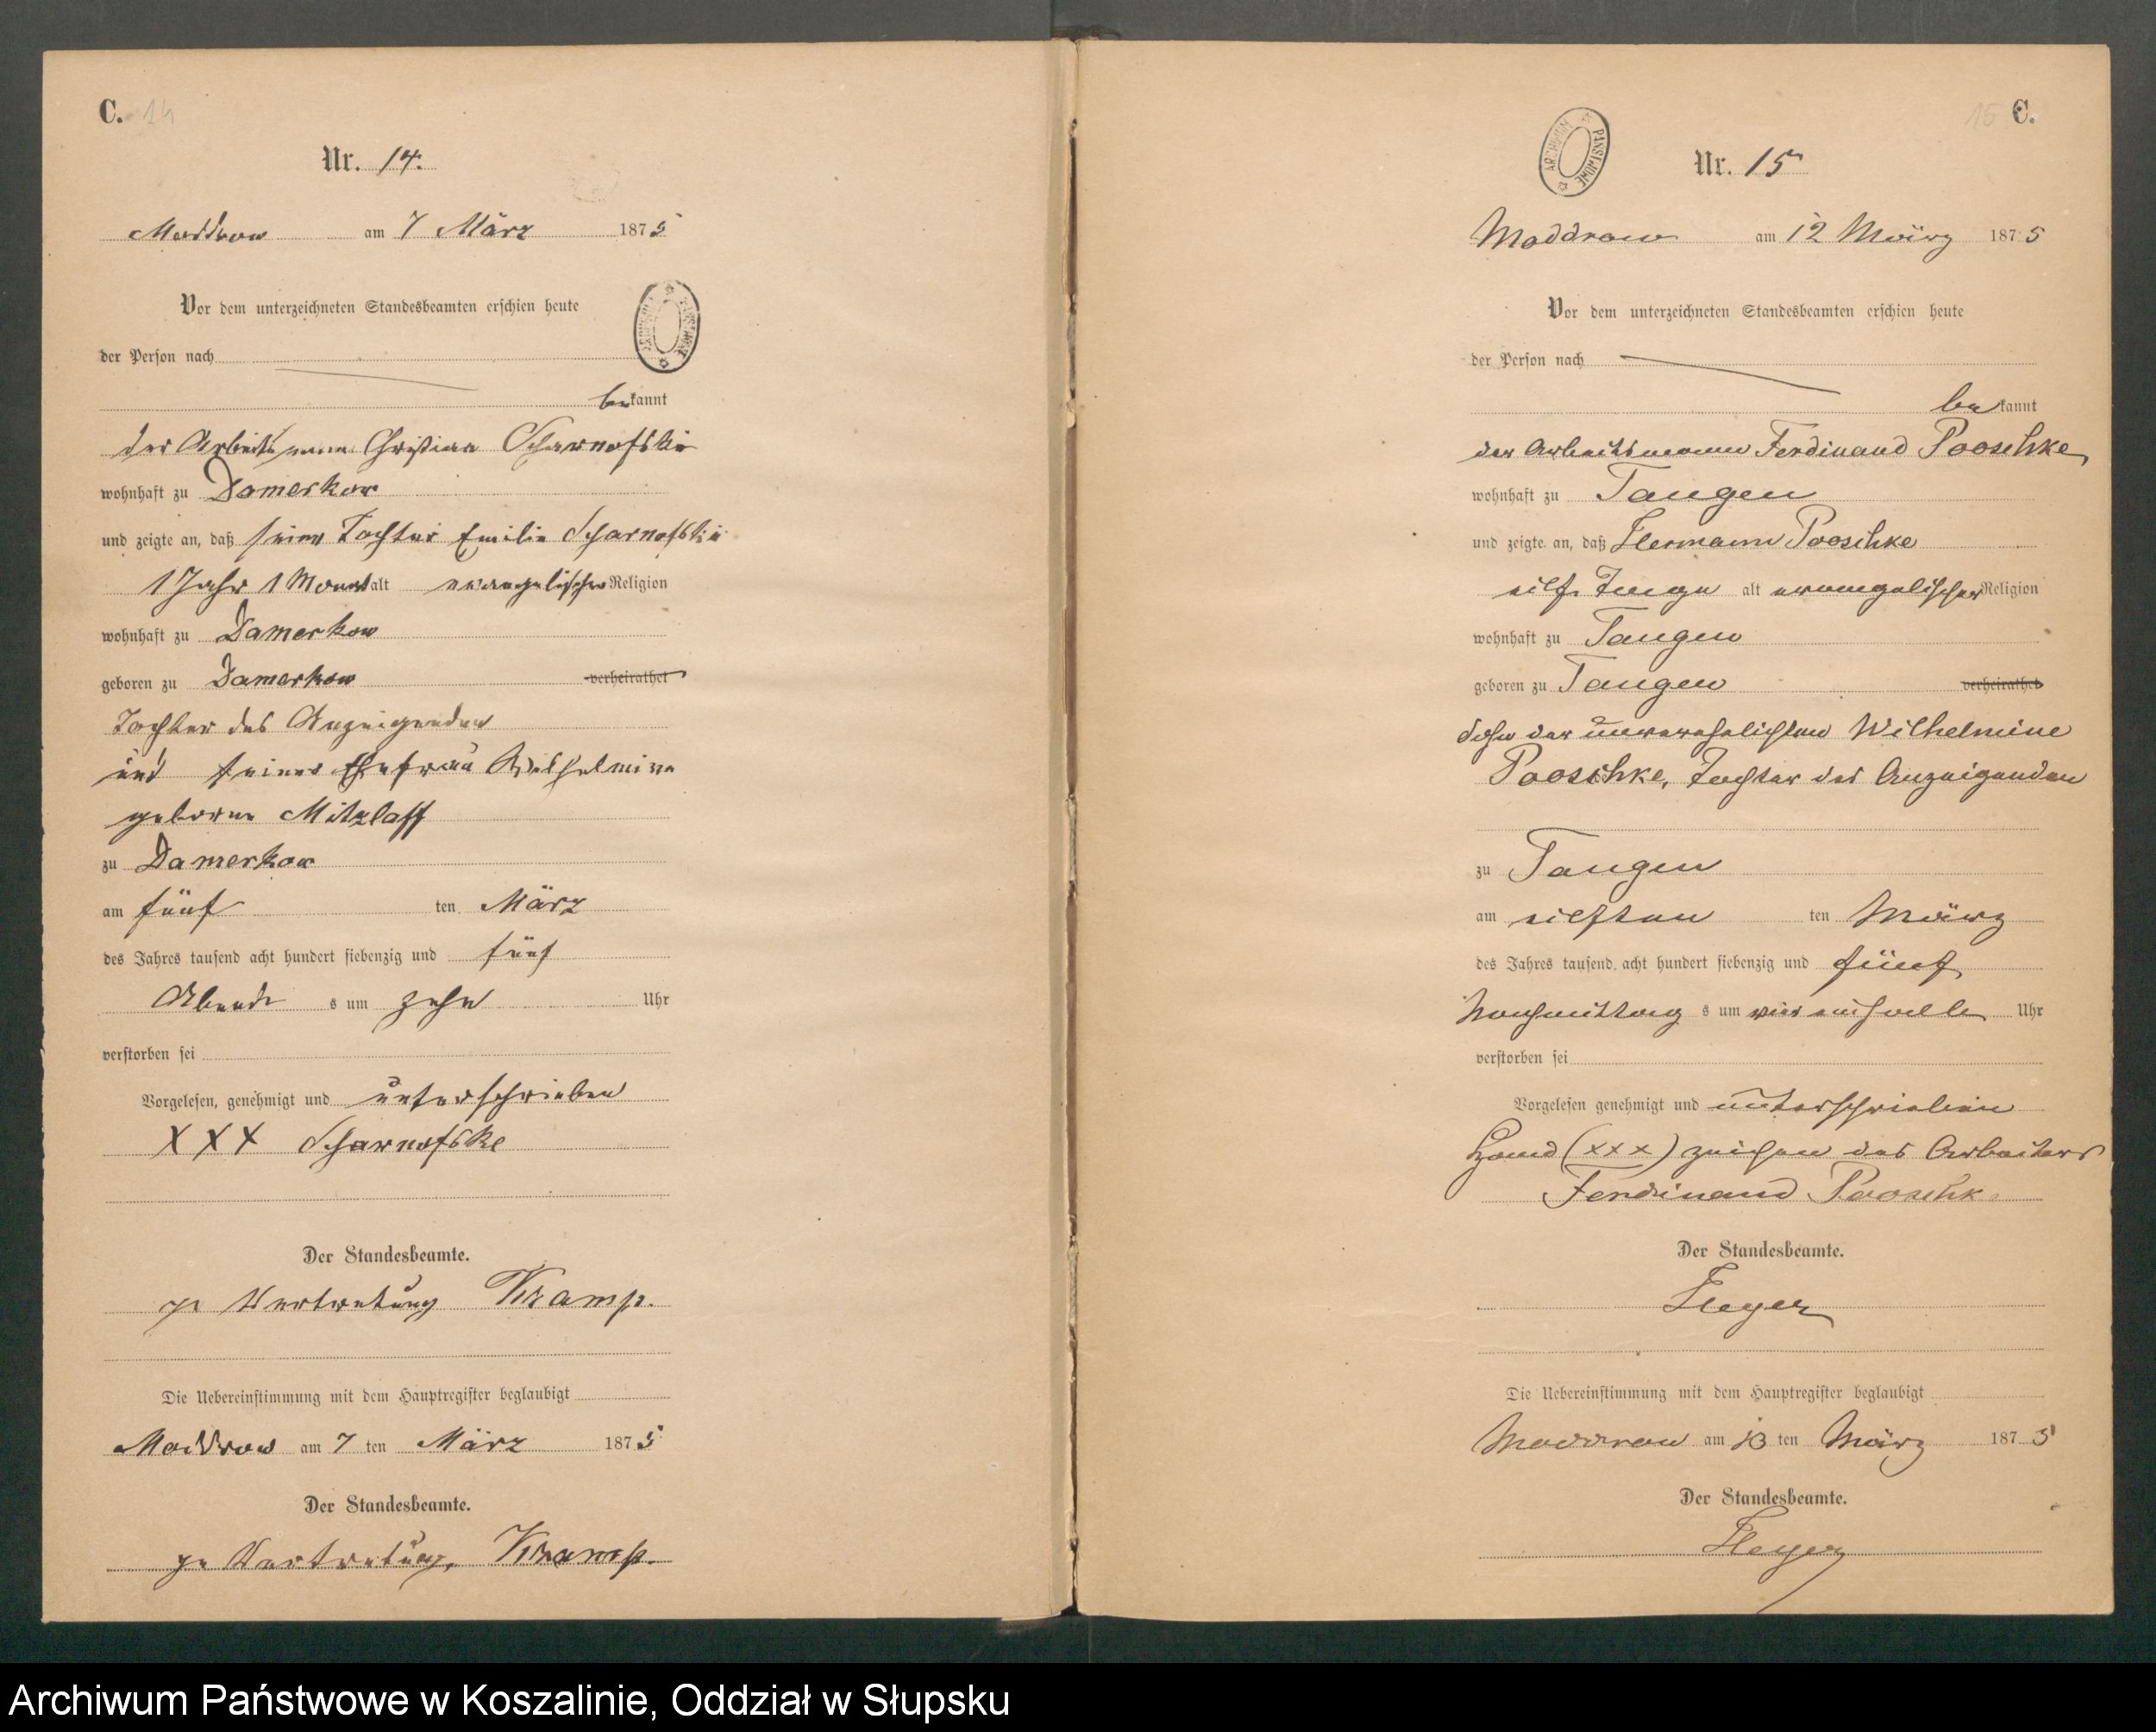 C. 14
Nr. 14.
Moddrow am 7 März 1875
Vor dem unterzeichneten Standesbeamten erschien heute
der Person nach
bekannt
der Arbeitsmann Christian Scharnofske
wohnhaft zu Damerkow
und zeigte an, daß seine Tochter Emilie Scharnofske
1 Jahr 1 Monat alt evangelischer Religion
wohnhaft zu Damerkow
geboren zu Damerkow verheirathet
Tochter des Anzeigenden
und seiner Ehefrau Wilhelmine
geborne Mitzlaff
zu Damerkow
am fünf ten März
des Jahres tausend acht hundert siebenzig und fünf
Abends um zehn Uhr
verstorben sei
Vorgelesen, genehmigt und unterschrieben
XXX Scharnofske
Der Standesbeamte.
in Vertretung Kramp.
Die Uebereinstimmung mit dem Hauptregister beglaubigt
Moddrow am 7 ten März 1875
Der Standesbeamte.
in Vertretung, Kramp.
15 C.
ARCHIWUM PAŃSTWOWE
Nr. 15
Moddrow am 12 März 1875
Vor dem unterzeichneten Standesbeamten erschien heute
der Person nach
bekannt
der Arbeitsmann Ferdinand Pooschke
wohnhaft zu Tangen
und zeigte an, daß Hermann Pooschke
elf Tage alt evangelischer Religion
wohnhaft zu Tangen
geboren zu Tangen verheirathet
Sohn der unverehelichten Wilhelmine
Pooschke, Tochter des Anzeigenden
zu Tangen
am elften ten März
des Jahres tausend acht hundert siebenzig und fünf
Nachmittags um vier einhalb Uhr
verstorben sei
Vorgelesen genehmigt und unterschrieben
Hand (xxx) zeichen des Arbeiters
Ferdinand Pooschk
Der Standesbeamte.
Heyer
Die Uebereinstimmung mit dem Hauptregister beglaubigt
Moddrow am 13 ten März 1875
Der Standesbeamte.
Heyer
Archiwum Państwowe w Koszalinie, Oddział w Słupsku